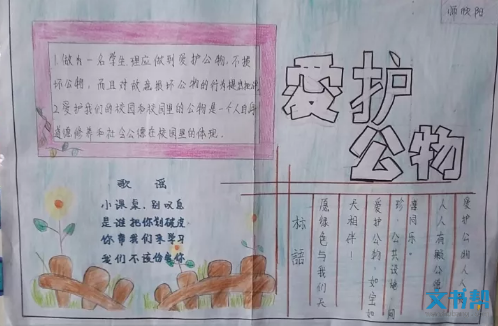 1.做为一名学生理应做到爱护公物，不损
坏公物，而且对故意损坏公物的行为提出批评
2.爱护我们的校园和校园里的公物是一个人自身
道德修养和社会公德在校园里的体现.
爱护
公物
歌谣
小课桌，别叹息
是谁把你划破皮
你帮我们来学习
我们不该伤害你
标语
爱护公物人人
人人
喜同乐。
珍 公共设施
爱护公物，如
天相伴！
绿色与我们天
文书帮